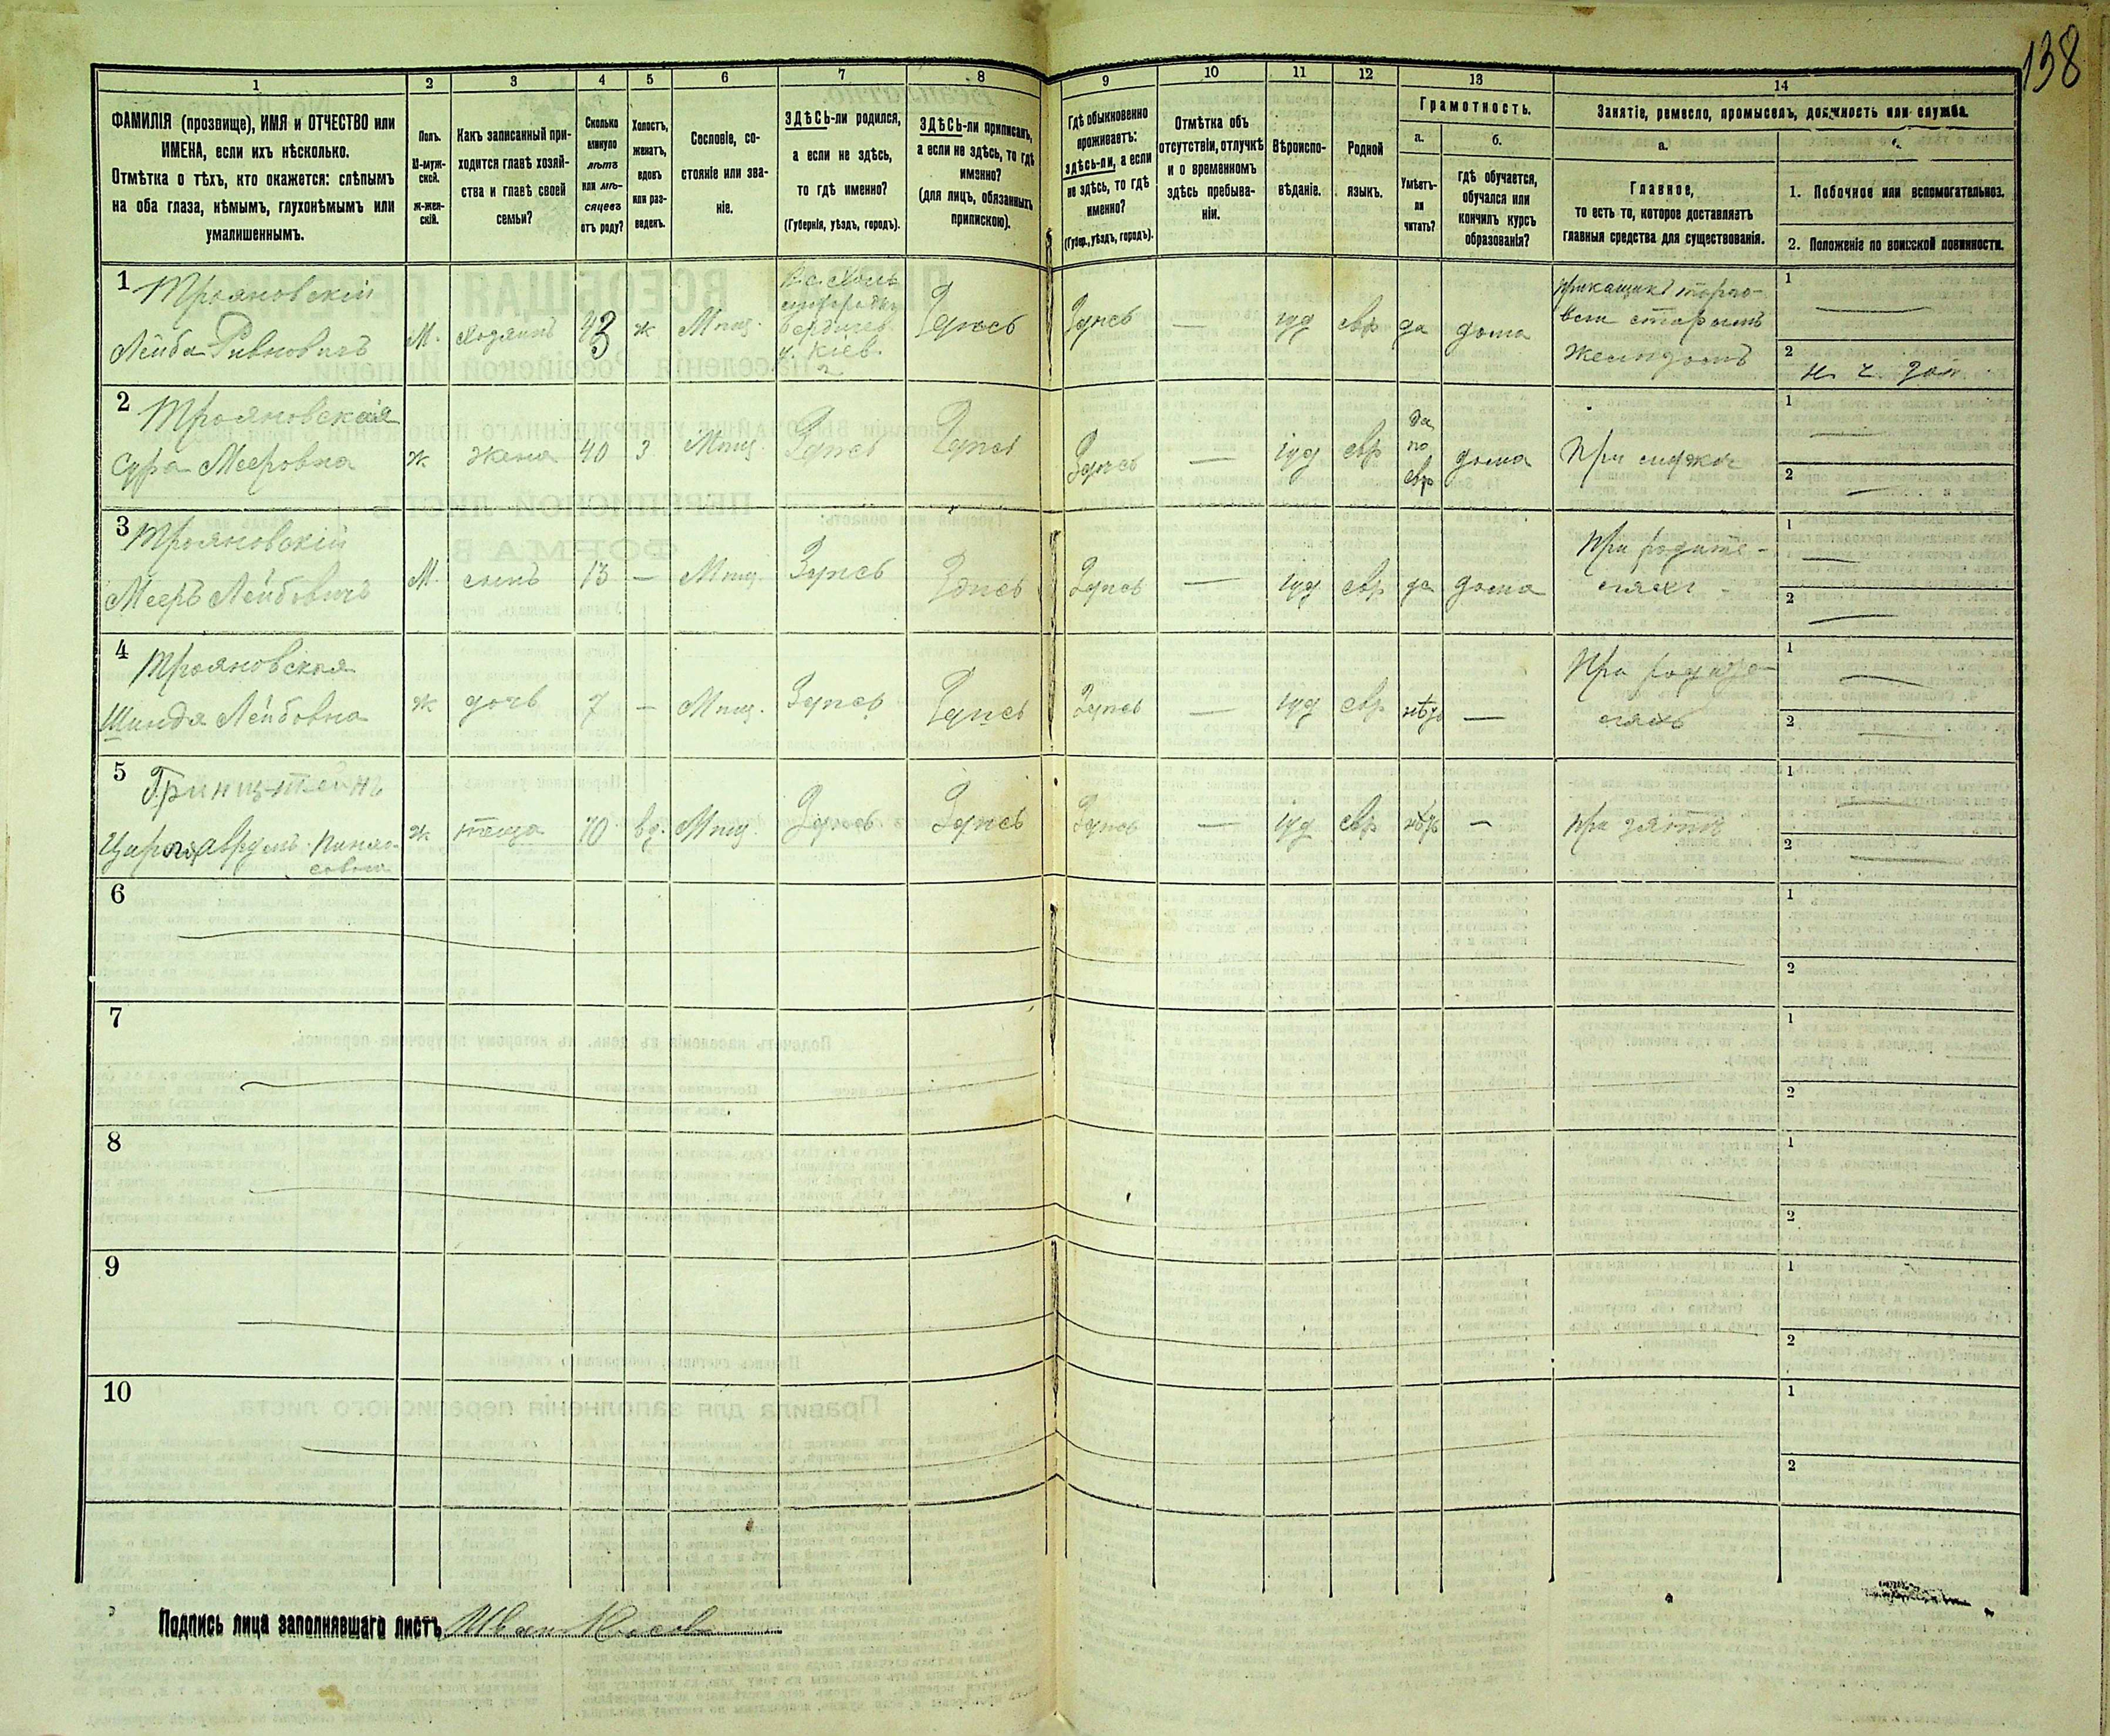 138
1
2
3
4
5
6
7
8
9
10
11
12
13
14
ФАМИЛІЯ (прозвище), ИМЯ и ОТЧЕСТВО или
ИМЕНА, если ихъ нѣсколько.
Отмѣтка о тѣхъ, кто окажется: слѣпымъ
на оба глаза, нѣмымъ, глухонѣмымъ или
умалишеннымъ.
Полъ.
М-муж-
ской.
ж-жен-
скій.
Какъ записанный при-
ходится главѣ хозяй-
ства и главѣ своей
семьи?
Сколько
минуло
лѣтъ
или мѣ-
сяцевъ
отъ роду?
Холостъ,
женатъ,
вдовъ
или раз-
веденъ.
Сословіе, со-
стояніе или зва-
ніе.
ЗДѢСЬ-ли родился,
а если не здѣсь,
то гдѣ именно?
(Губернія, уѣздъ, городъ).
ЗДѢСЬ-ли приписанъ,
а если не здѣсь, то гдѣ
именно?
(для лицъ, обязанныхъ
припискою).
Гдѣ обыкновенно
проживаетъ:
здѣсь-ли, а если
не здѣсь, то гдѣ
именно?
(Губер., уѣздъ, городъ).
Отмѣтка объ
отсутствіи, отлучкѣ
и о временномъ
здѣсь пребыва-
ніи.
Вѣроиспо-
вѣданіе.
Родной
языкъ.
Грамотность.
а.
Умѣетъ-
ли
читать?
б.
гдѣ обучается,
обучался или
кончилъ курсъ
образованія?
Занятіе, ремесло, промыселъ, должность или служба.
а.
Главное,
то есть то, которое доставляетъ
главныя средства для существованія.
1. Побочное или вспомогательное.
2. Положеніе по воинской повинности.
1
Трояновскій
Лейба Ривновичъ
М.
хозяинъ
43
ж
Мѣщ.
Бердичев.
у. Кіев.
Здѣсь
Здѣсь
—
іуд
евр
да
дома
прикащикъ торго-
вли старымъ
желѣзомъ
1
—
2
2
Трояновская
Сура Мееровна
ж.
жена
40
з
Мѣщ.
Здѣсь
Здѣсь
Здѣсь
—
іуд
евр
да
по
евр
дома
1
—
2
—
3
Трояновскій
Мееръ Лейбовичъ
М.
сынъ
13
—
Мѣщ.
Здѣсь
Здѣсь
Здѣсь
—
іуд
евр
да
дома
При родите-
ляхъ
1
—
2
—
4
Трояновская
Шиндя Лейбовна
ж
дочь
7
—
Мѣщ.
Здѣсь
Здѣсь
Здѣсь
—
іуд
евр
нѣтъ
—
При родите-
ляхъ
1
—
2
—
5
Гринштейнъ
Пинхо-
совна
ж
теща
70
вд.
Мѣщ.
Здѣсь
Здѣсь
Здѣсь
—
іуд
евр
нѣтъ
—
при зятѣ
1
—
2
—
6
1
2
7
1
2
8
1
2
9
1
2
10
1
2
Подпись лица заполнявшаго листъ Иван